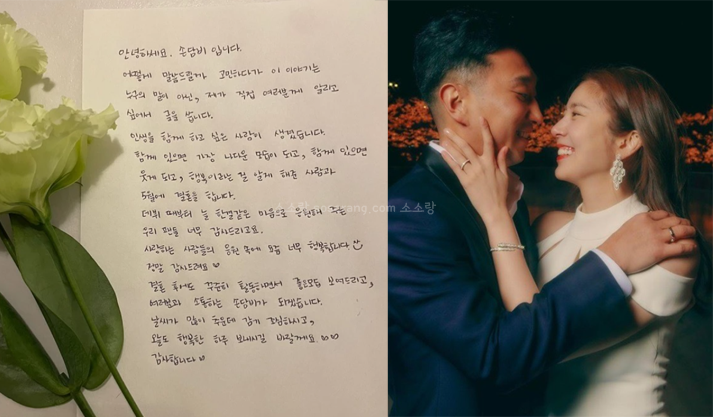 안녕하세요. 손담비 입니다.
어떻게 말씀드릴까 고민하다가 이 이야기는
누구의 말이 아닌, 제가 직접 여러분께 알리고
싶어서 글을 씁니다.
인생을 함께 하고 싶은 사람이 생겼습니다.
함께 있으면 가장 나다운 모습이 되고, 함께 있으면
웃게 되고, 행복이라는 걸 알게 해준 사람과
5월에 결혼을 합니다.
데뷔 때부터 늘 한결같은 마음으로 응원해 주는
우리 팬들 너무 감사드리고요.
사랑하는 사람들의 응원 덕에 요즘 너무 행복합니다
정말 감사드려요
결혼 후에도 꾸준히 활동하면서 좋은모습 보여드리고,
여러분과 소통하는 손담비가 되겠습니다.
날씨가 많이 추운데 감기 조심하시고,
오늘도 행복한 하루 보내시길 바랄게요
감사합니다
소소랑
.com 소소랑